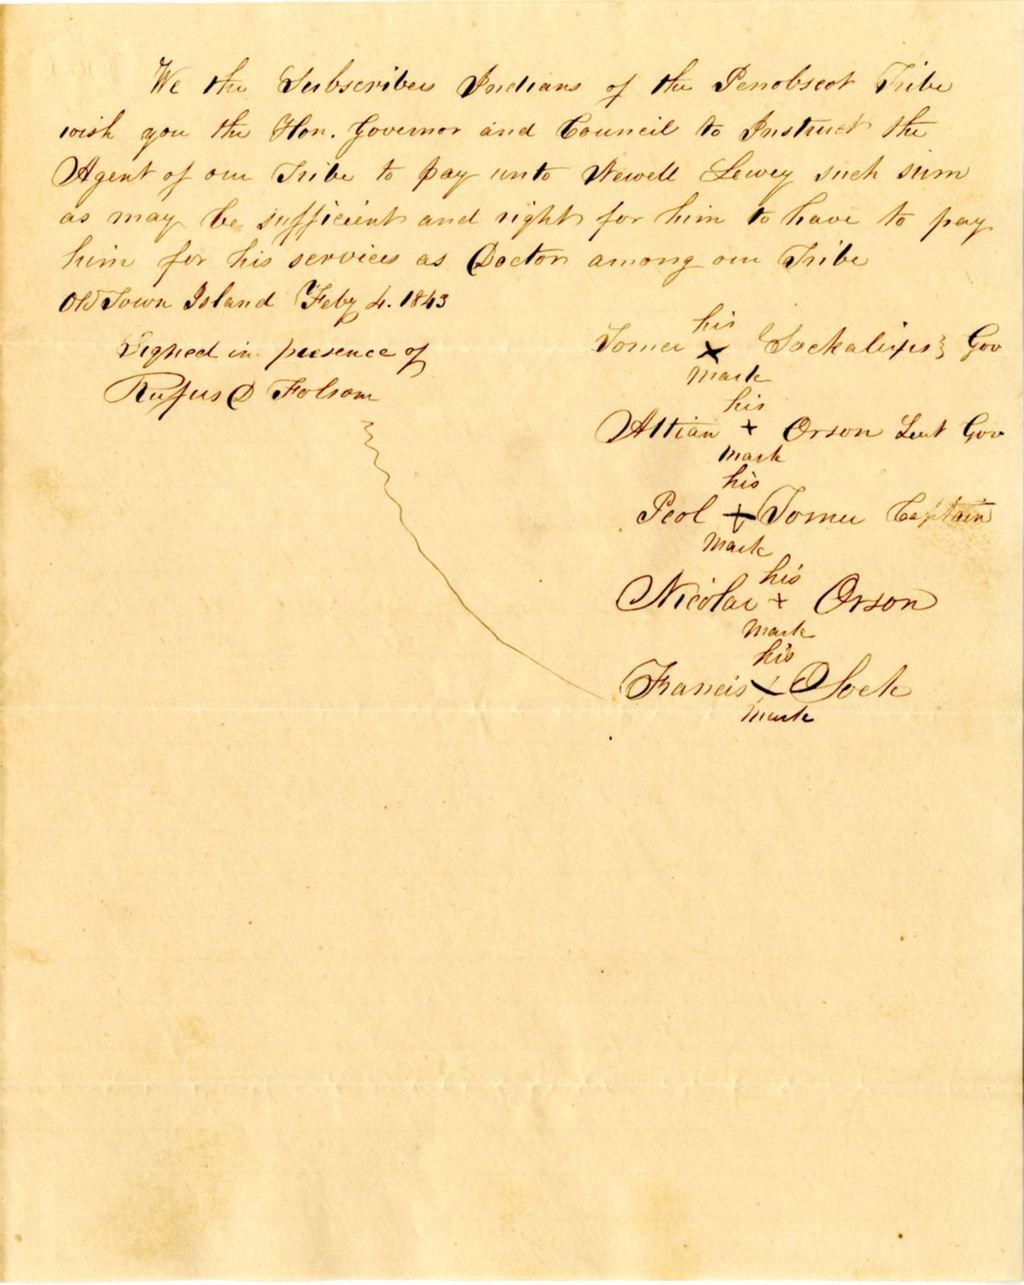 We the Subscribers Indians of the Penobscot Tribe
wish you the Hon. Governor and Council to Instruct the
Agent of our Tribe to pay unto Newell Lewey such sum
as may be sufficient and right for him to have to pay
him for his services as Doctor among our Tribe
Old Town Island Feby 4. 1843
Signed in presence of
Rufus D Folsom
his
Tomer x Sockalixis Gov
mark
his
Attian + Orson Leut Gov
mark
his
Peol + Tomer Captain
mark
his
Nicolai + Orson
mark
his
Francis x O Sock
mark